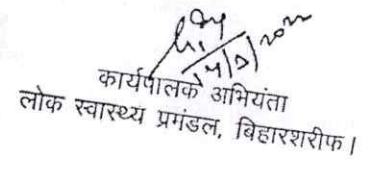 कार्यपालक अभियंता
लोक स्वास्थ्य प्रमंडल, बिहारशरीफ।